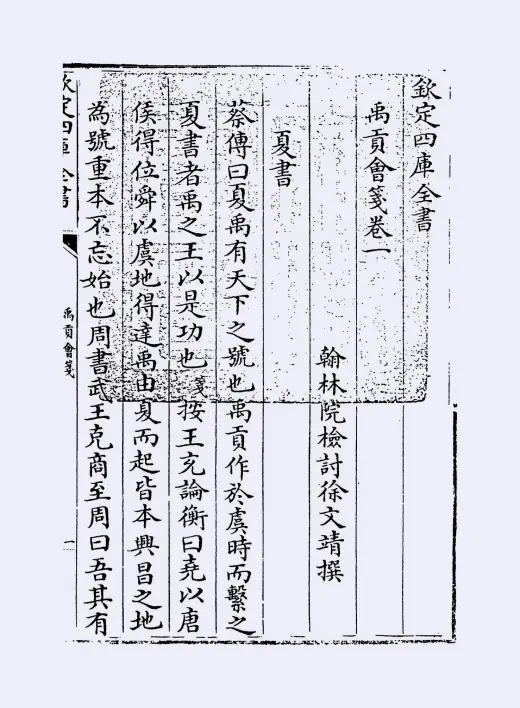 欽定四庫全書
禹貢會箋卷一
翰林院檢討徐文靖撰
夏書
蔡傳曰夏禹有天下之號也禹貢作於虞時而繫之
夏書者禹之王以是功也箋按王充論衡曰堯以唐
侯得位舜以虞地得達禹由夏而起皆本興昌之地
為號重本不忘始也周書武王克商至周曰吾其有
欽定四庫全書
禹貢會箋
一